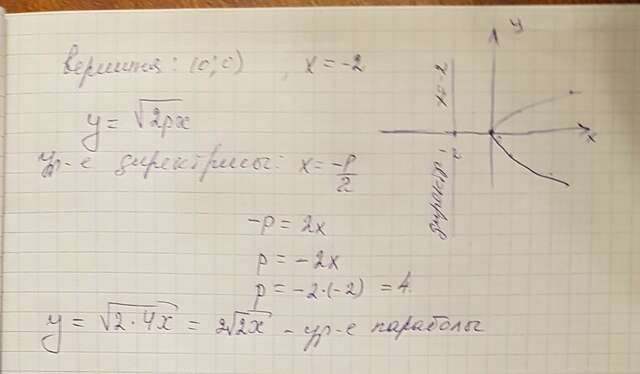 вершина: (0;0), x = -2
y = √2px
Ур-е директрисы: x = -p/2
-p = 2x
p = -2x
p = -2·(-2) = 4
y = √2·4x = 2√2x - ур-е параболы
y
x
x=-2
-2